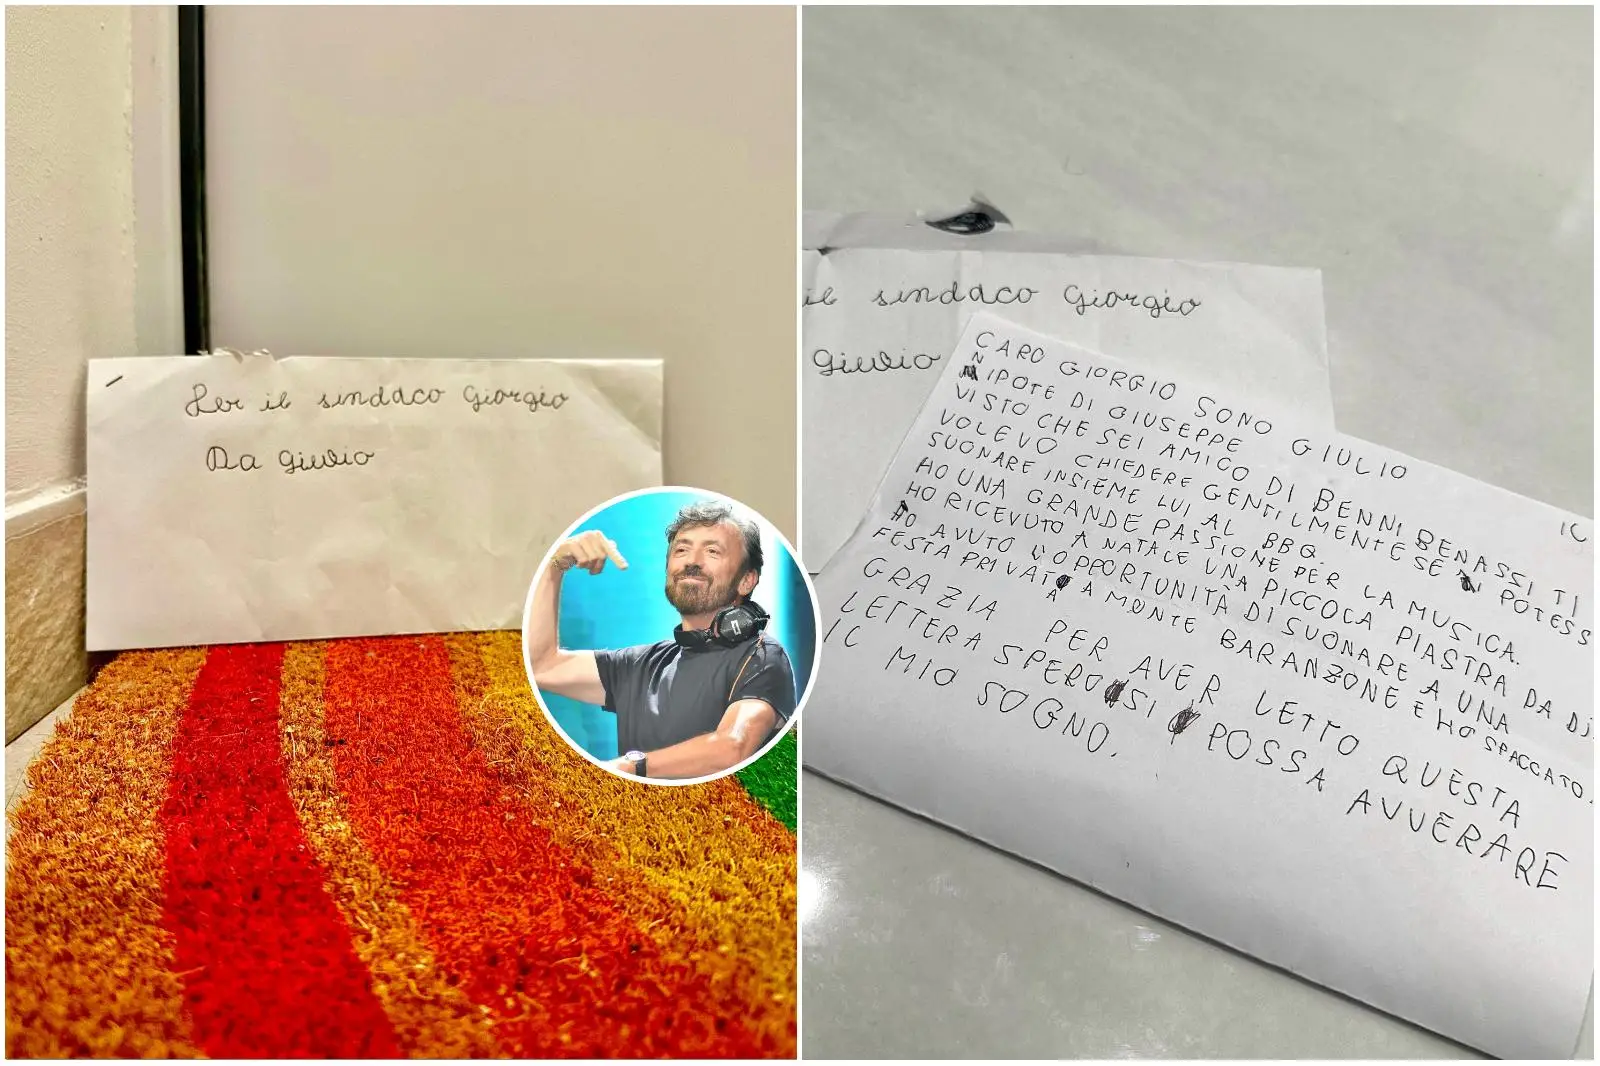 Per il sindaco Giorgio
Da Giulio
il sindaco Giorgio
Giulio
CARO GIORGIO SONO GIULIO IL
NIPOTE DI GIUSEPPE
VISTO CHE SEI AMICO DI BENNI BENASSI TI
VOLEVO CHIEDERE GENTILMENTE SE POTESS
SUONARE INSIEME LUI AL BBQ.
HO UNA GRANDE PASSIONE PER LA MUSICA.
HO RICEVUTO A NATALE UNA PICCOLA PIASTRA DA DJ.
HO AVUTO L'OPPORTUNITÀ DI SUONARE A UNA
FESTA PRIVATA A MONTE BARANZONE E HO SPACCATO.
GRAZIA PER AVER LETTO QUESTA
LETTERA SPERO SI POSSA AVVERARE
IL MIO SOGNO.